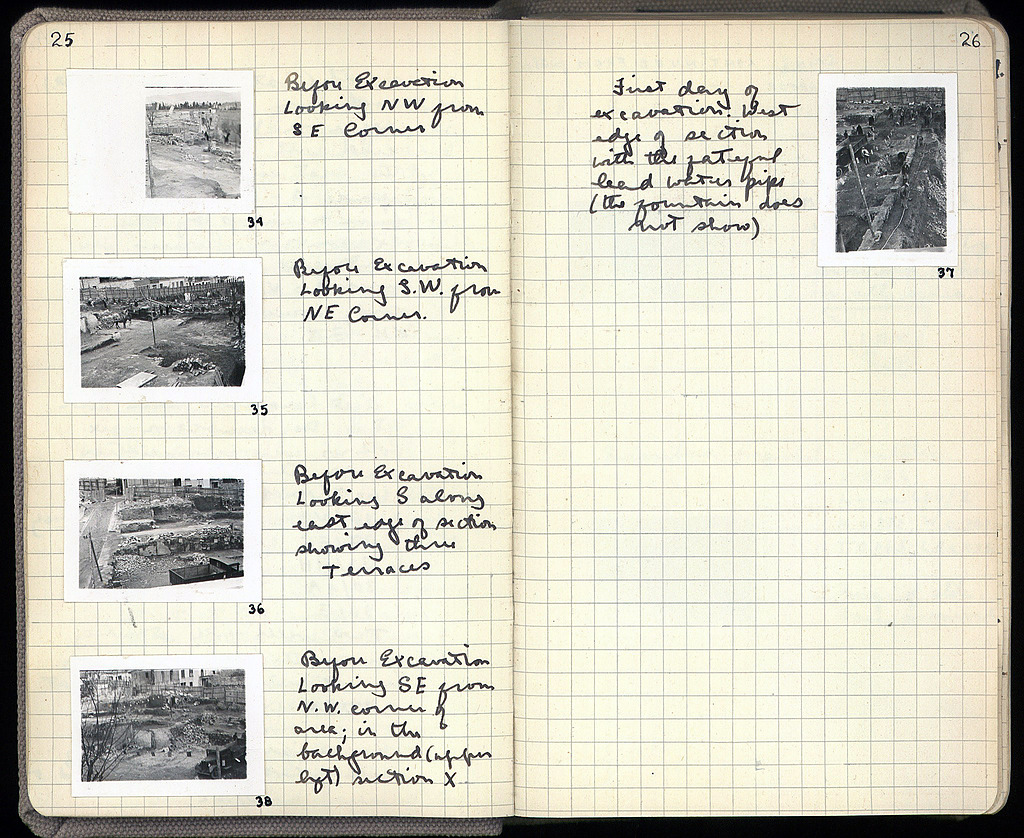 25
Before Excavation
Looking NW from
SE Corner
34
Before Excavation
Looking S.W. from
NE Corner.
35
Before Excavation
Looking S along
east edge of section
showing three
Terraces
36
Before Excavation
Looking SE from
N.W. corner of
area; in the
background (upper
left) section X
38
26
First day of
excavation. West
edge of section
with the fateful
lead water pipe
(the fountain does
not show)
37